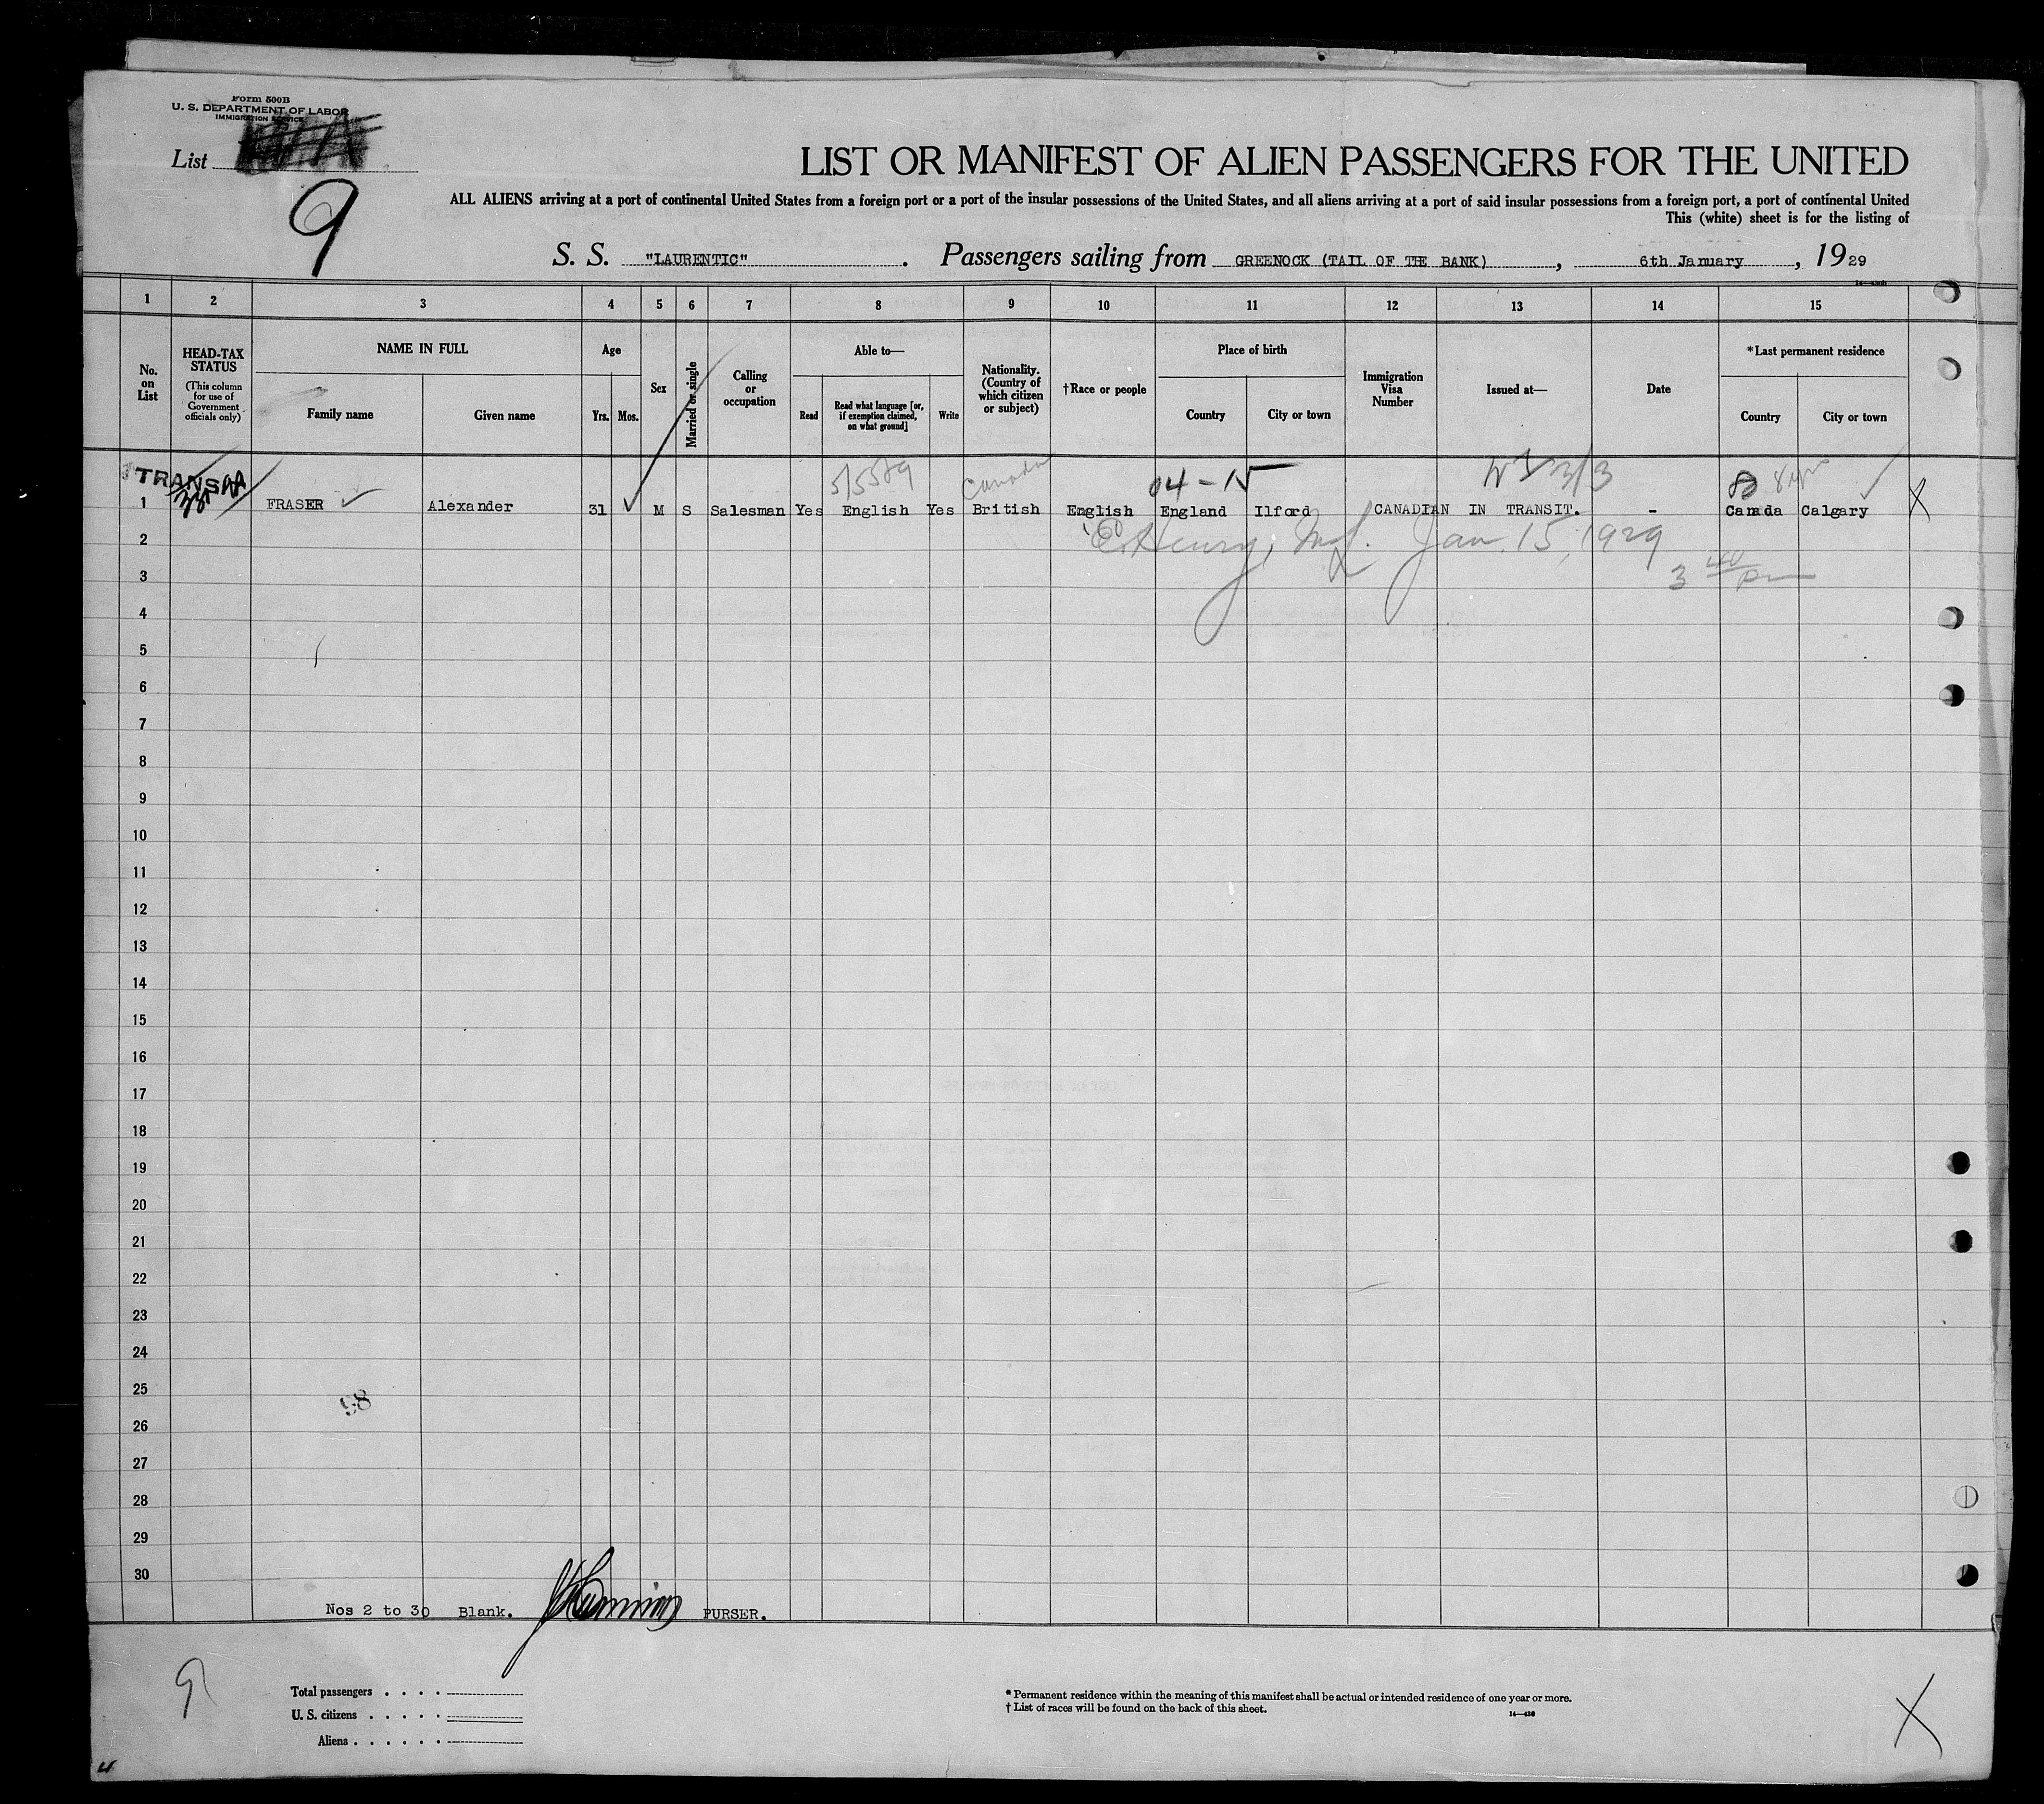 Form 500B
U. S. DEPARTMENT OF LABOR
IMMIGRATION SERVICE
List
9
LIST OR MANIFEST OF ALIEN PASSENGERS FOR THE UNITED
ALL ALIENS arriving at a port of continental United States from a foreign port or a port of the insular possessions of the United States, and all aliens arriving at a port of said insular possessions from a foreign port, a port of continental United
This (white) sheet is for the listing of
S. S. "LAURENTIC". Passengers sailing from GREENOCK (TAIL OF THE BANK), 6th January, 1929
14—430
1 2 3 4 5 6 7 8 9 10 11 12 13 14 15
No. on List
HEAD-TAX STATUS
(This column for use of Government officials only)
NAME IN FULL
Family name
Given name
Age
Yrs.
Mos.
Sex
Married or single
Calling or occupation
Able to—
Read
Read what language [or, if exemption claimed, on what ground]
Write
Nationality. (Country of which citizen or subject)
†Race or people
Place of birth
Country
City or town
Immigration Visa Number
Issued at—
Date
*Last permanent residence
Country
City or town
5/5589 Canada 04-15
1 FRASER Alexander 31 M S Salesman Yes English Yes British English England Ilford CANADIAN IN TRANSIT. - Canada Calgary X
2 Henry, Jan. 15, 1929
3 3 40 pm
4
5
6
7
8
9
10
11
12
13
14
15
16
17
18
19
20
21
22
23
24
25
98
26
27
28
29
30
Nos 2 to 30 Blank. PURSER.
9
Total passengers
U. S. citizens
Aliens
* Permanent residence within the meaning of this manifest shall be actual or intended residence of one year or more.
† List of races will be found on the back of this sheet.
14—430
X